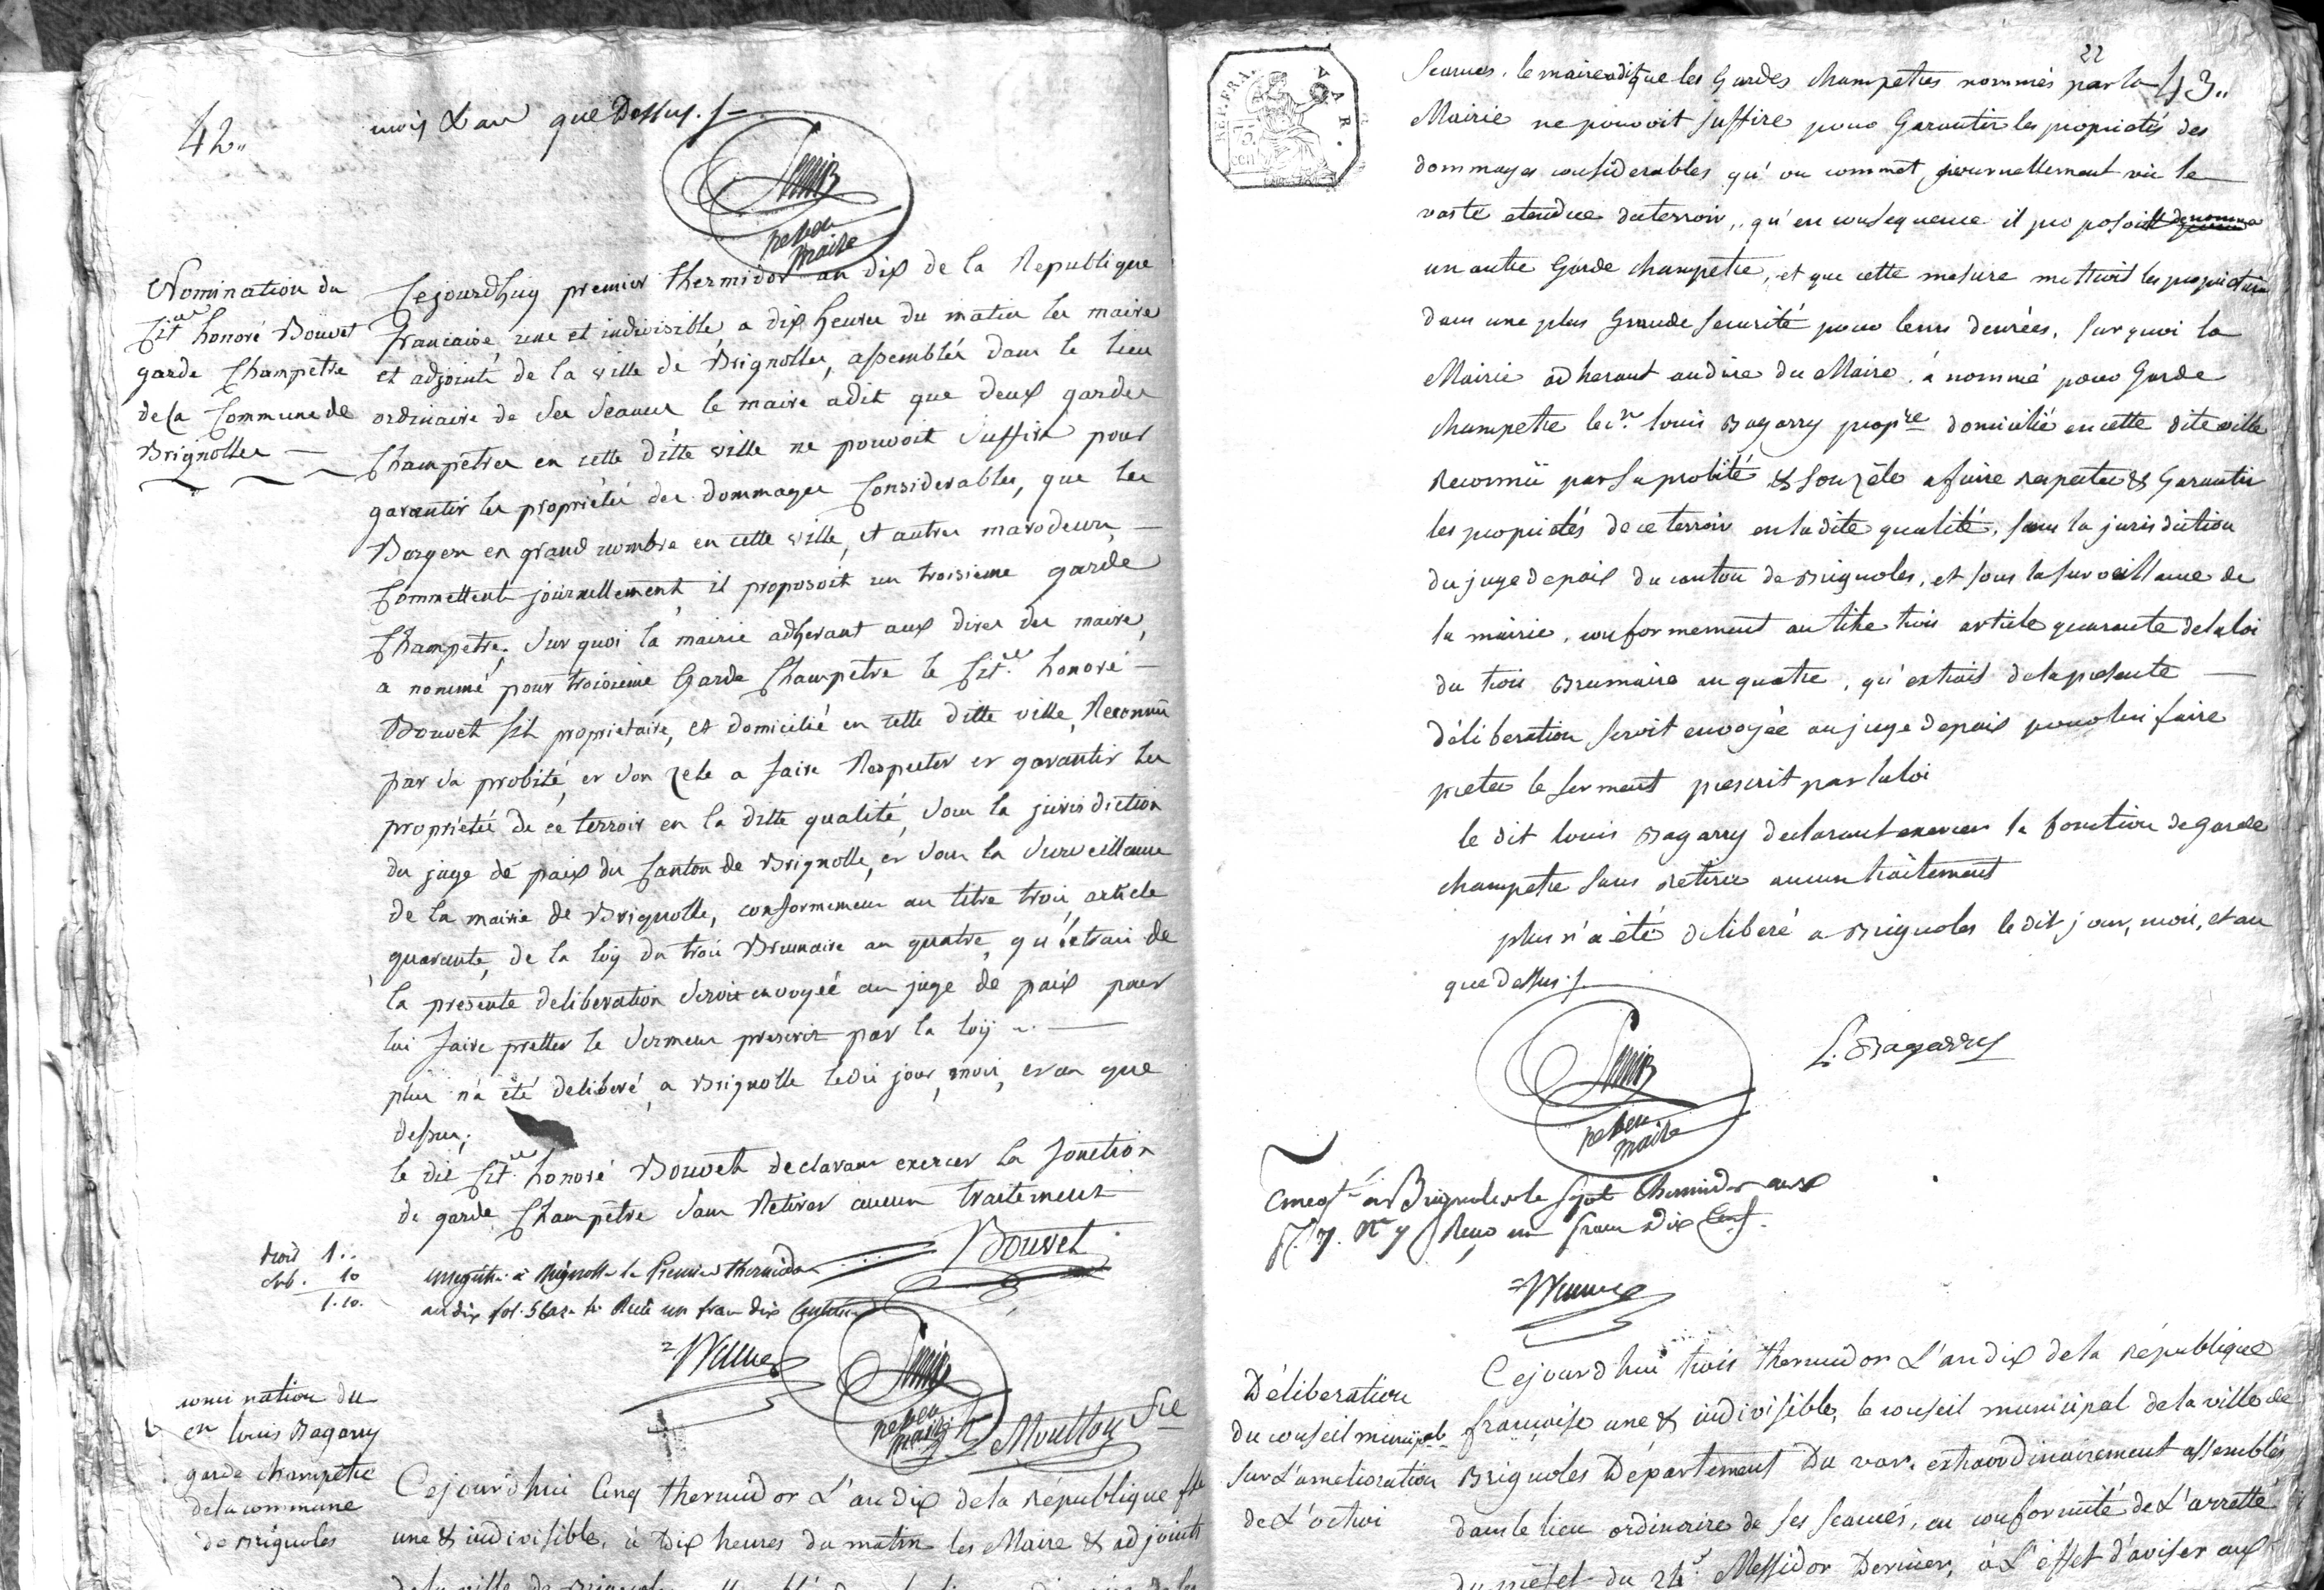 42"
mois & an que Dessus ./.
reben
maire
Nomination du
Cit.en honoré Bouvet
garde Champêtre
de la Commune de
Brignolles
Cejourdhuy premier thermidor an dix de la Republique
francaise une et indivisible, a dix heures du matin les maire
et adjoints de la ville de Brignolles, assemblés dans le lieu
ordinaire de ses seances le maire a dit que deux gardes
Champêtres en cette ditte ville ne pouvoit suffire pour
garantir les propriétés des dommages Considerables, que les
en grand nombre en cette ville, et autres marodeurs
Commettent journellement, il proposoit un troisieme garde
Champetre; sur quoi la mairie adherant aux dires du maire,
a nommé pour troisieme Garde Champêtre le Cit.en honoré
Bouvet fils proprietaire, et domicilié en cette ditte ville, Reconnu
par sa probité, et son zele a faire Respecter et garantir les
propriétés de ce terroir en la ditte qualité, sous la jurisdiction
du juge de paix du Canton de Brignolle, et sous la surveillance
de la mairie de Brignolle, conformement au titre trois article
quarante, de la loy du trois Brumaire an quatre, qu'extrait de
la presente deliberation seroit envoyée au juge de paix pour
lui faire pretter le serment prescrit par la loy
plus n'a été deliberé, a Brignolle ledit jour, mois, et an que
dessus;
le dit Cit.en honoré Bouvet declarant exercer la fonction
de garde Champêtre sans Retirer aucun traitement
Bouvet
droit 1..
sub. 10
1.10.
enregistré à Brignolle le Premier thermidor
an dix fol. Reçu un franc dix Centimes
reben
maire
Moutton Sre
nomination du
cn louis Bagarry
garde champêtre
de la commune
de Brignoles
Cejourd'hui Cinq thermidor L'an dix de la république fse
une & indivisible, à Dix heures du matin les Maire & adjoints
de la ville de Brignoles
22
43"
REP. FRA.
VAR.
Seances, le maire a dit que les Gardes champetres nommés par la
Mairie ne pouvoit suffire pour Garantir les propriétés des
dommages considerables qu'on commet, journellement vû le
vaste etendue du terroir, qu'en consequence il proposoit de nommer
un autre Garde champetre, et que cette mesure mettroit les proprietaires
dans une plus Grande securité pour leurs denrées, sur quoi la
Mairie adherant au dire du Maire, a nommé pour Garde
champetre le cn. louis Bagarry propre domicilié en cette dite ville
reconnû par sa probité & son zèle a faire respecter & Garantir
les propriétés de ce terroir en la dite qualité, sous la jurisdiction
du juge de paix du canton de Brignoles, et sous la surveillance de
la mairie, conformement au titre trois article quarante de la loi
du trois Brumaire an quatre, qu'extrait de la presente
déliberation seroit envoyée au juge de paix pour lui faire
preter le serment prescrit par la loi
le dit louis Bagarry declarant exercer la fonction de garde
champetre sans retirer aucun traitement
plus n'a été déliberé a Brignoles le dit jour, mois, et an
que dessus ./.
L. Bagarry
reben
maire
Enregté à Brignoles le Sept thermidor an X
Reçu un franc Dix Cent.
Déliberation
du conseil municipal
sur l'amelioration
de L'octroi
Cejourd'hui trois thermidor L'an dix de la république
françoise une & indivisible, le conseil municipal de la ville de
Brignoles Département Du var, extraordinairement assemblés
dans le lieu ordinaire de ses seances, en conformité de L'arretté
du préfet du 24 Messidor Dernier, à L'éffet d'aviser aux